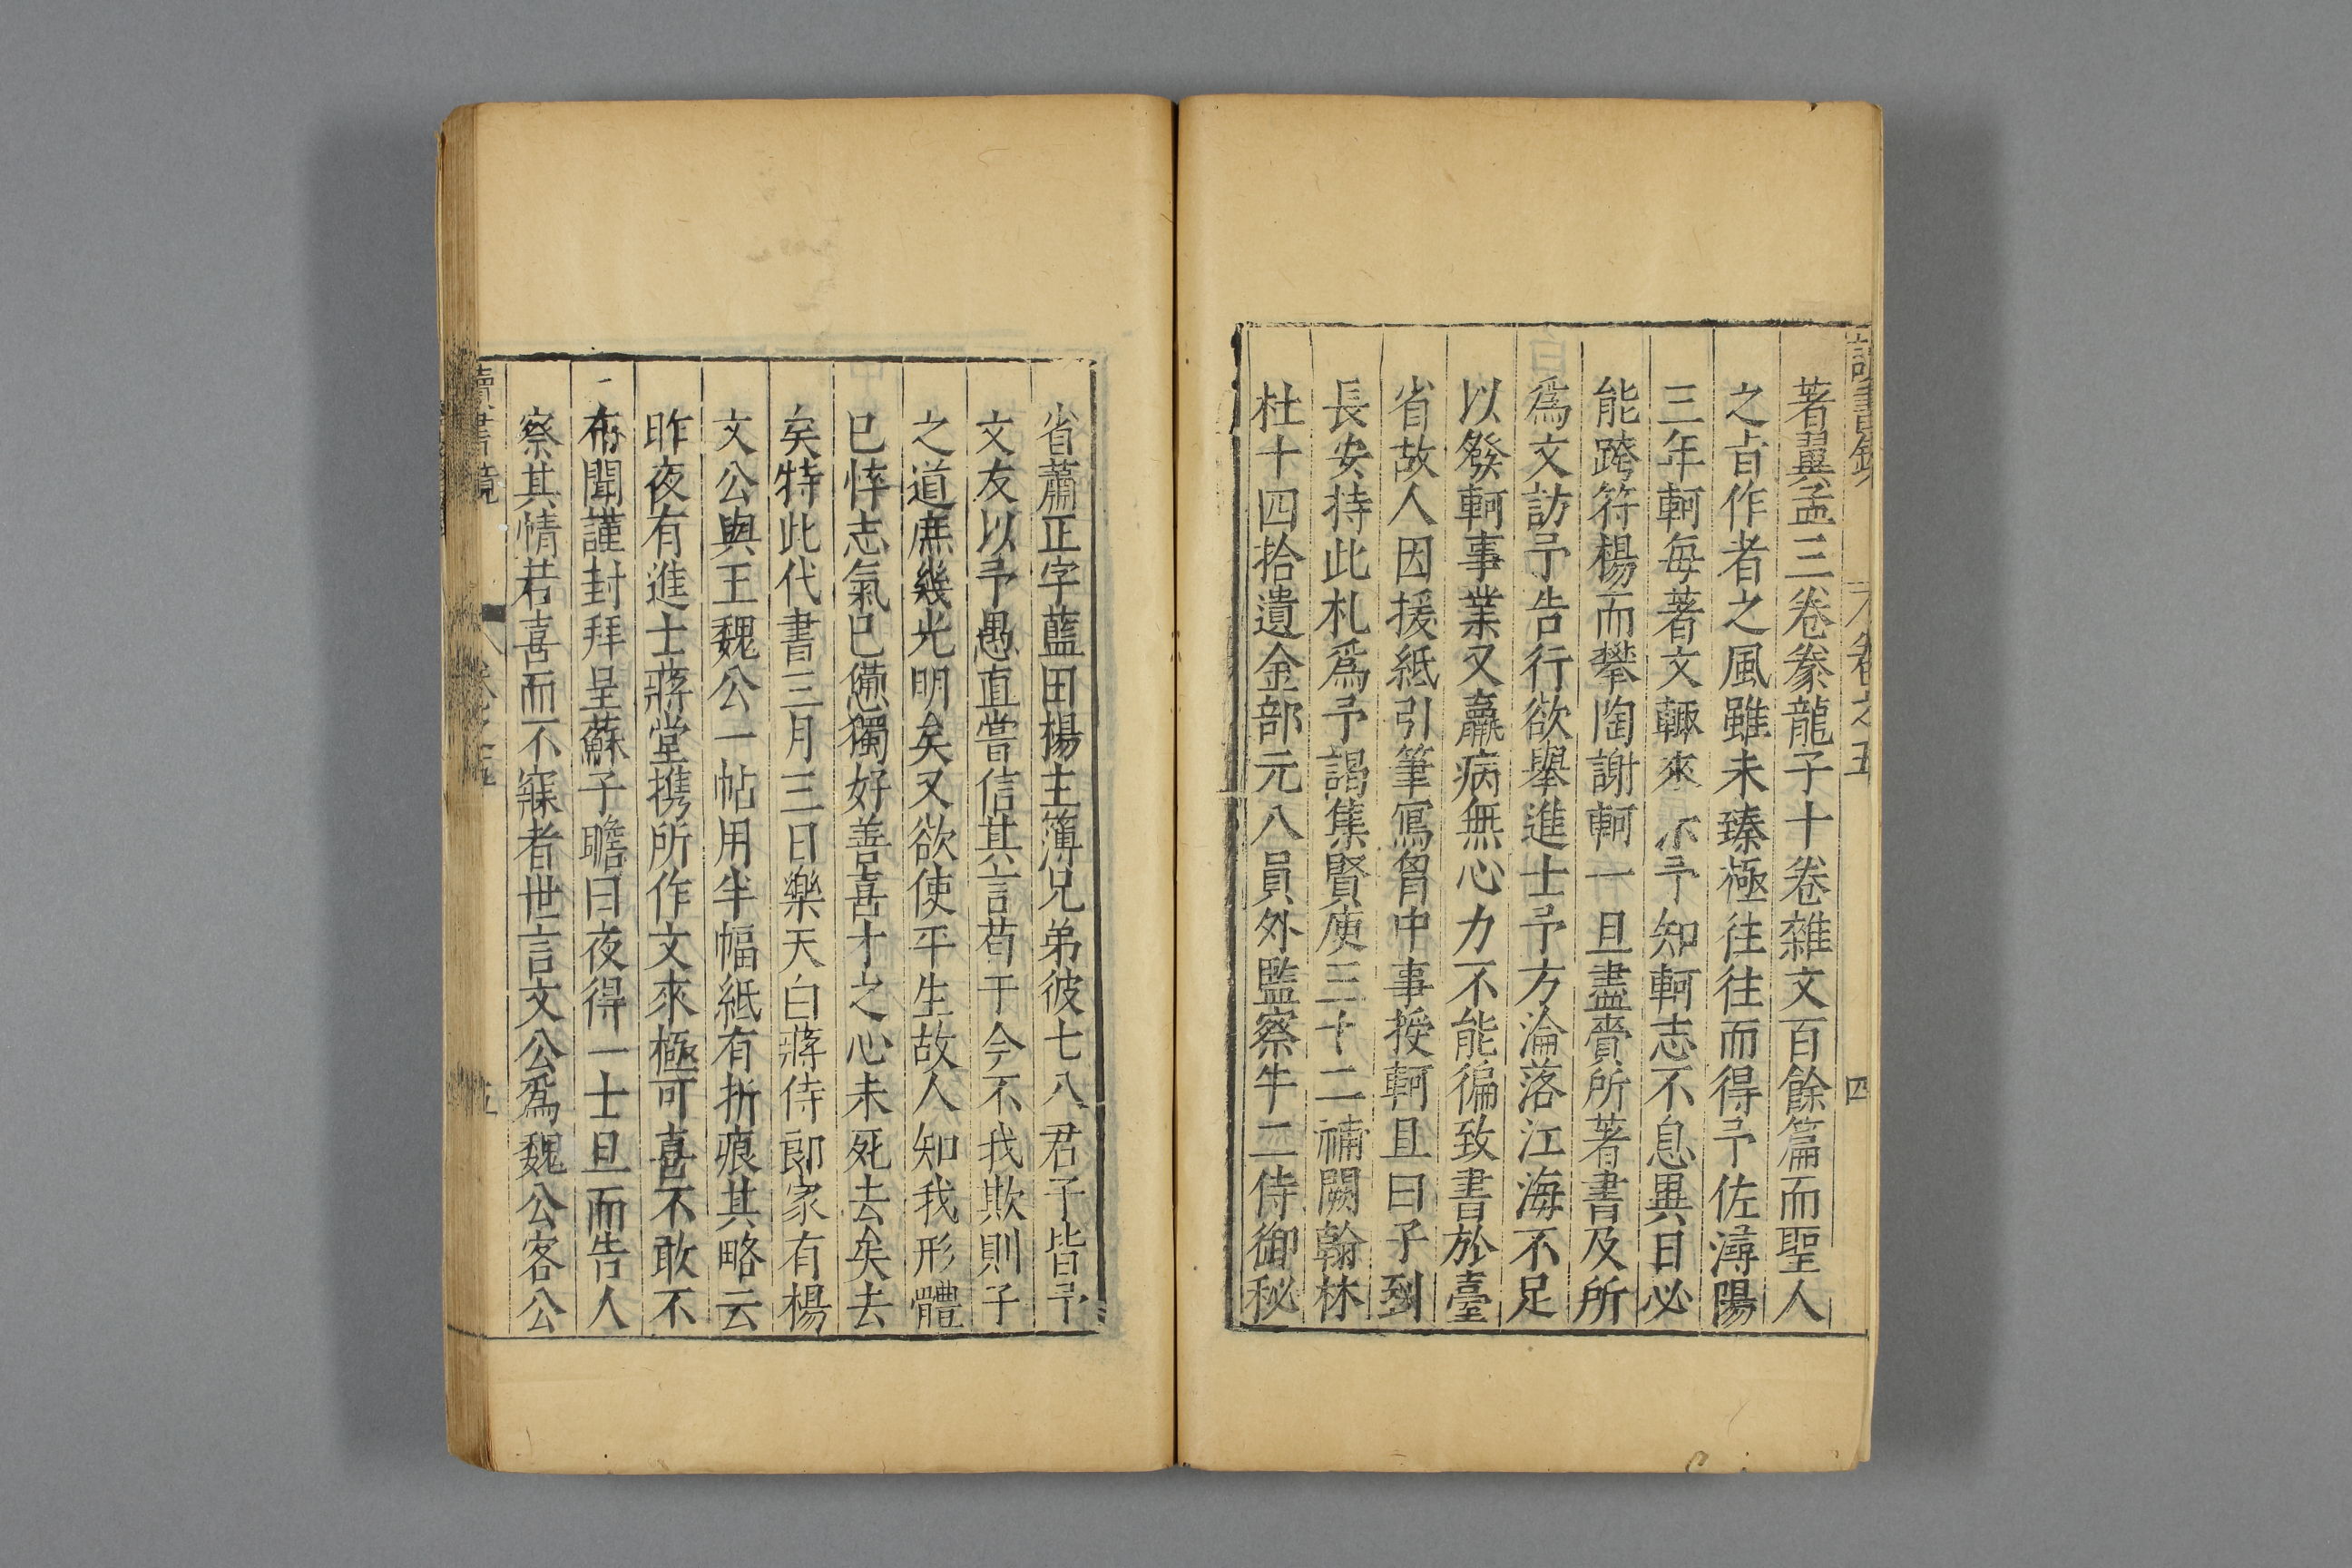 讀書鏡 卷之五 四
著翼孟三卷豢龍子十卷雜文百餘篇而聖人
之㫖作者之風雖未臻極往往而得予佐潯陽
三年軻每著文輙來 示予知軻志不息異日必
能跨符楊而攀陶謝軻一旦盡賫所著書及所
爲文訪予告行欲舉進士予方淪落江海不足
以發軻事業又羸病無心力不能徧致書於臺
省故人因援紙引筆寫胷中事授軻且曰子到
長安持此札爲予謁集賢庾三十二補闕翰林
杜十四拾遺金部元八員外監察牛二侍御秘
省蕭正字藍田楊主簿兄弟彼七八君子皆予
文友以予愚直嘗信其言苟于今不我欺則子
之道庶幾光明矣又欲使平生故人知我形體
已悴志氣已憊獨好善喜才之心未死去矣去
矣特此代書三月三日樂天白蔣侍郎家有楊
文公與王魏公一帖用半幅紙有折痕其略云
昨夜有進士蔣堂携所作文來極可喜不敢不
布聞謹封拜呈蘇子瞻曰夜得一士旦而告人
察其情若喜而不寐者世言文公爲魏公客公
讀書鏡 卷之五 五